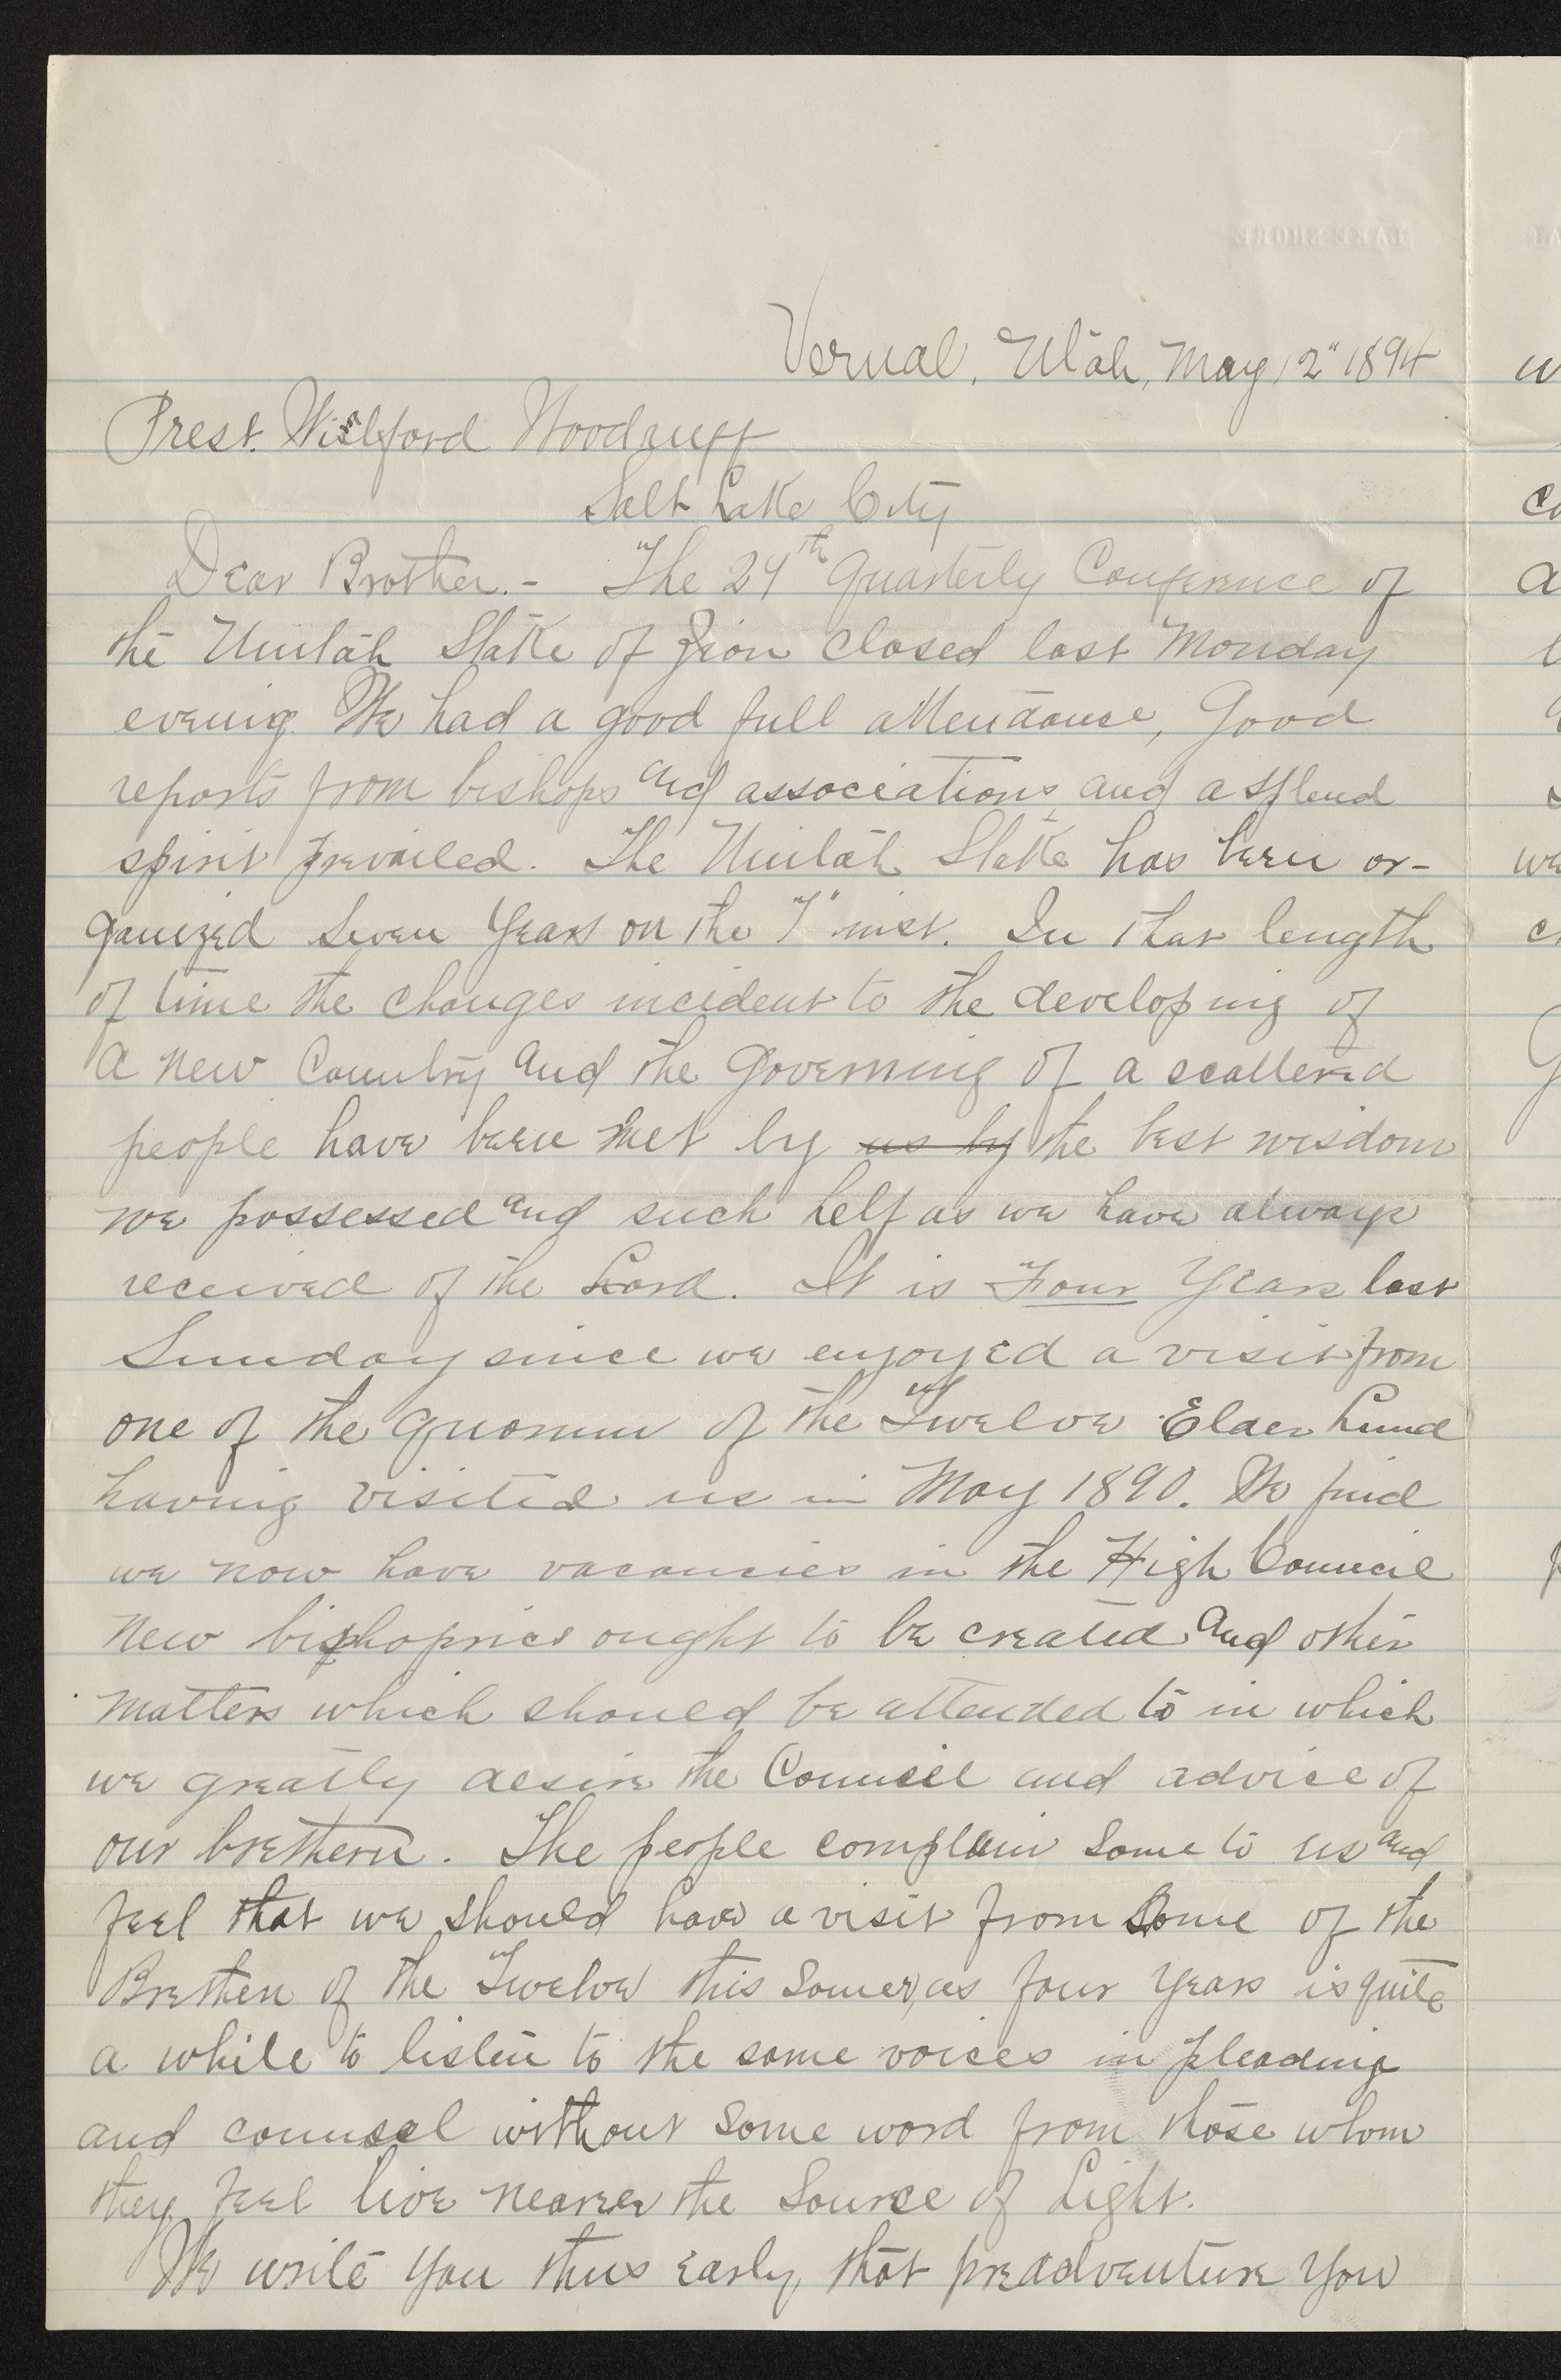 Vernal, Utah, May 12" 1894
Prest. Wilford Woodruff
Salt Lake City
Dear Brother.- The 29th Quarterly Conference of
the Uintah Stake of Zion closed last Monday
evening. We had a good full attendance, Good
reports from bishops and associations and a splend
spirit prevailed. The Uintah Stake has been or-
ganized seven Years on the 7" inst. In that length
of time the changes incident to the developing of
a new Country and the Governing of a scattered
people have been met by us by the best wisdom
we possessed and such help as we have always
received of the Lord. It is Four Years last
Sunday since we enjoyed a visit from
one of the quorum of the Twelve Elder Lund
having visited us in May 1890. We find
we now have vacancies in the High Council
New bishoprics ought to be created and other
matters which should be attended to in which
we greatly desire the Council and advice of
our brethern. The people complain some to us and
feel that we should have a visit from Some of the
Brethen of the Twelve this Somer, as four years is quite
a while to listen to the same voices in pleading
and counsel without some word from those whom
they feel live nearer the Source of Light.
We write you thus early, that preadventure you